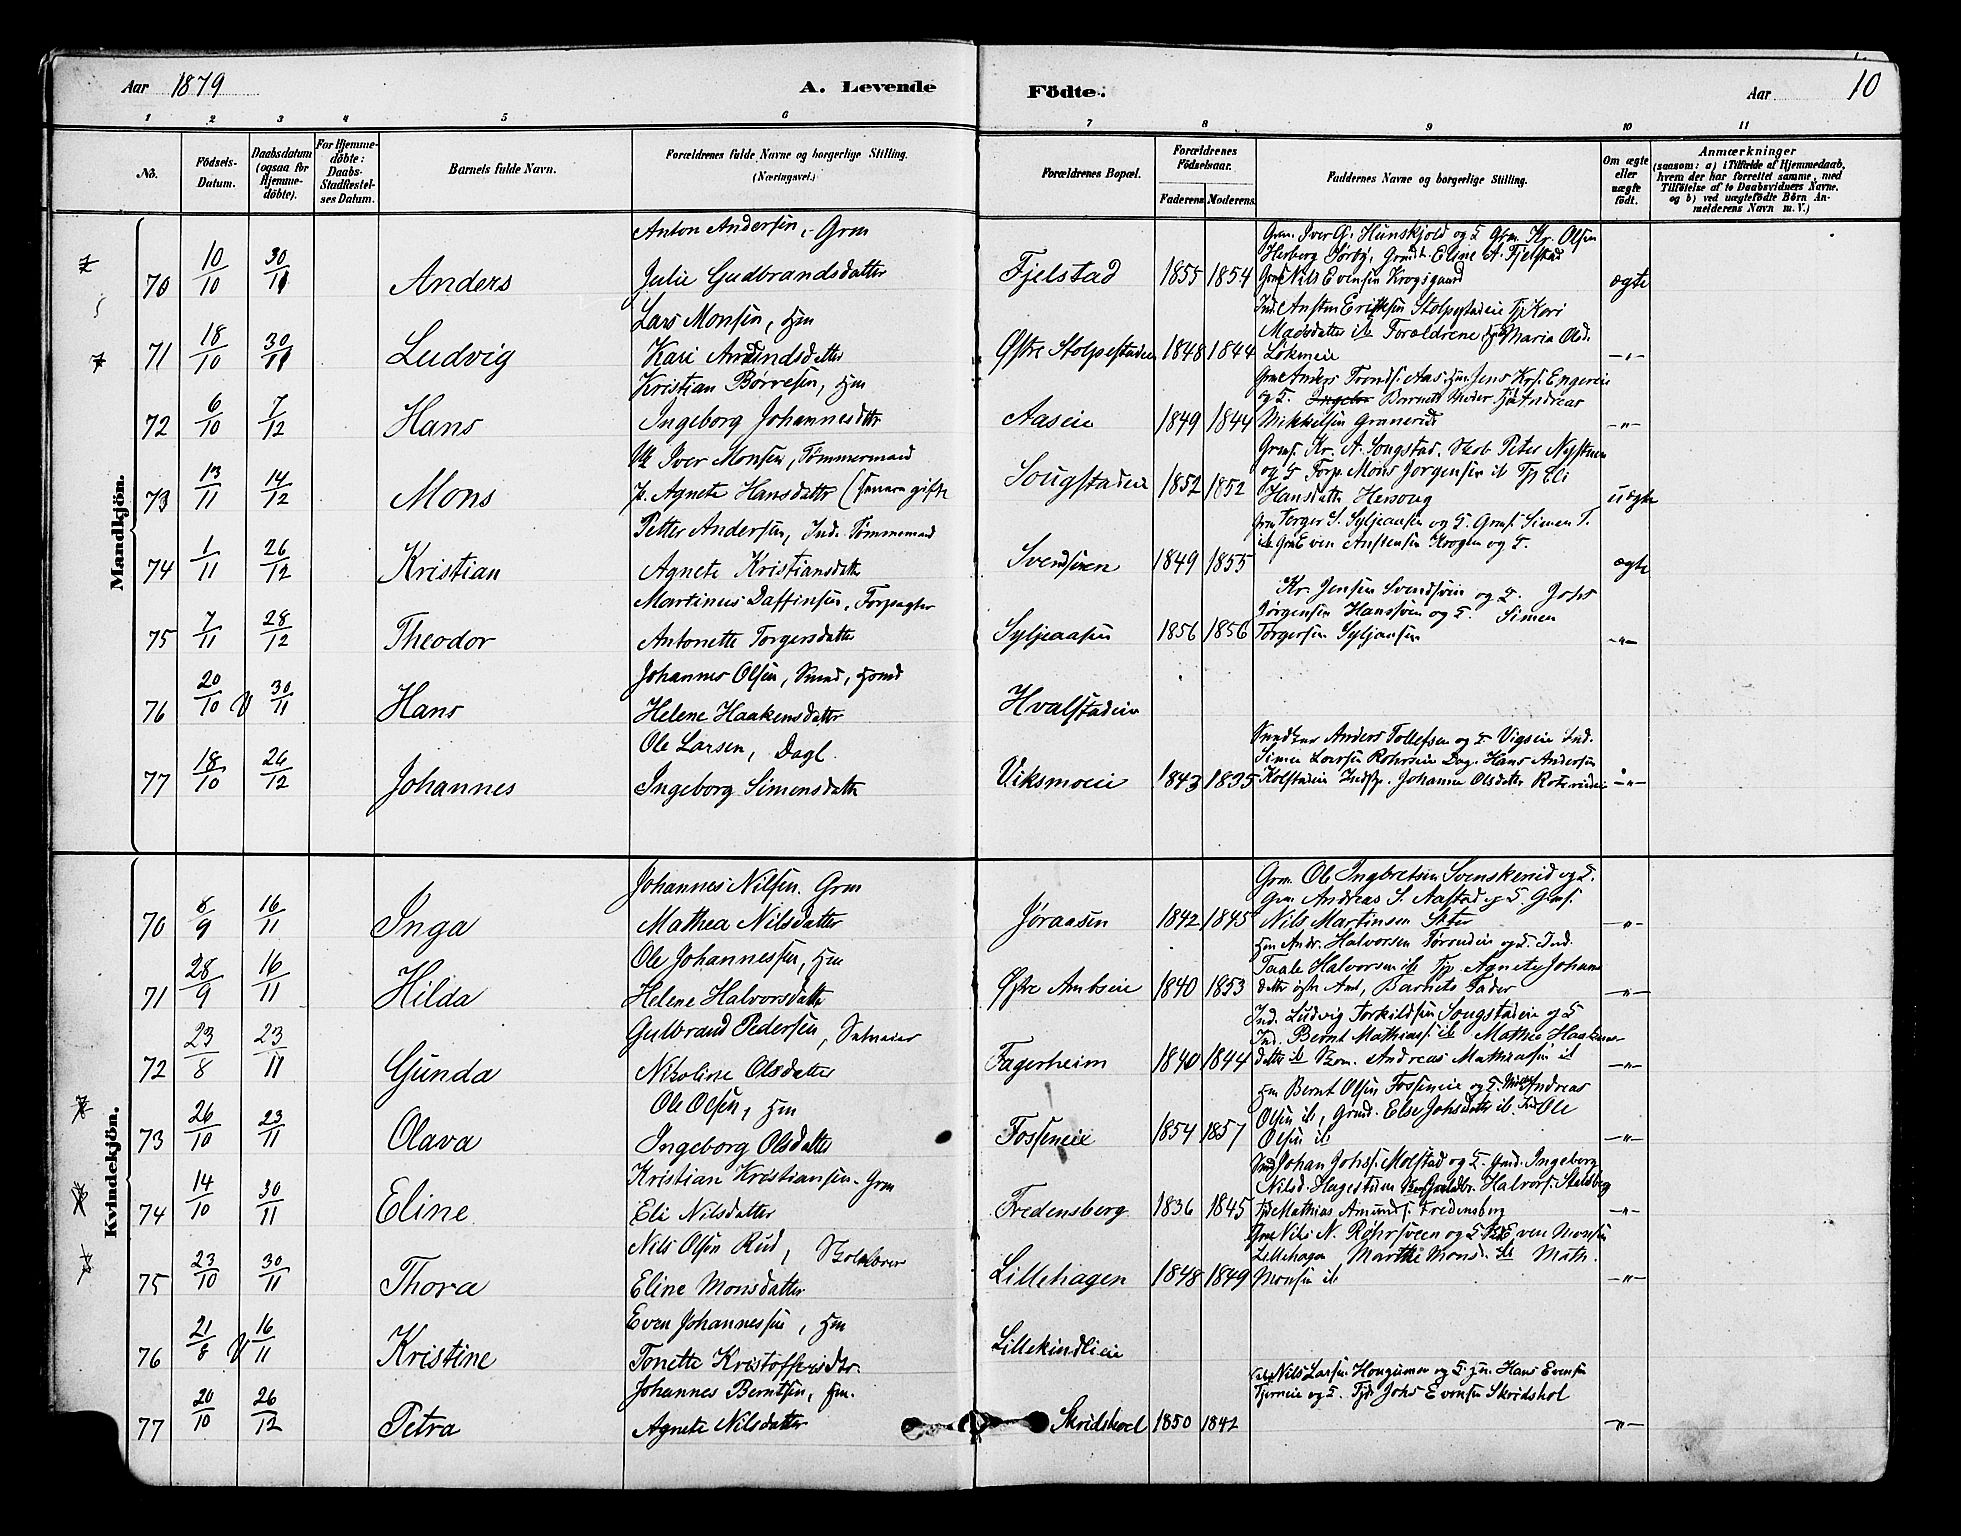 Aar 1879
A. Levende
Födte.
Aar 10
1 2 3 4 5 6 7 8 9 10 11
No.
Födsels-
Datum.
Daabsdatum
(ogsaa for
Hjemme-
döbte).
For Hjemme-
döbte:
Daabs-
Stadfæstel-
ses Datum.
Barnets fulde Navn.
Forældrenes fulde Navne og borgerlige Stilling.
(Næringsvei.)
Forældrenes Bopæl.
Forældrenes
Födselsaar.
Faderens Moderens.
Faddernes Navne og borgerlige Stilling.
Om ægte
eller
uægte
födt.
Anmærkninger
(saasom: a) i Tilfælde af Hjemmedaab,
hvem der har forrettet samme, med
Tilföielse af to Daabsvidners Navne,
og b) ved uægtefödte Börn An-
melderens Navn m. V.)
Mandkjön.
70 10/10 30/11 Anders
Anton Andersen, Grm
Julie Gudbrandsdatter
Fjelstad 1855 1854
Grm. Iver G. Hunskjold og F. Grm. Kr. Olsen
Herberg Eline A. Fjelstad
Nils Evensen Krogsgaard
ægte
71 18/10 30/11 Ludvig
Lars Monsen, Hm
Kari Amundsdatter
Østre Stolpestadeie 1848 1844
Ind. Ansten Eriksen Stolpestadeie Tj Kari
Madsdatter ib Forældrene Maria Olsd.
Lökmeie
-"-
72 6/10 7/12 Hans
Kristian Börresen, Hm
Ingeborg Johannesdatter
Aaseie 1849 1844
Grm Anders Trondsf. Aas Hm Jens Krs. Engereie
og F. Barnets Moder Andreas
Mikkelsen Granerud
-"-
73 13/11 14/12 Mons
Iver Monsen, Tømmermand
p. Agnete Hansdatter (senere gifte
Sougstadeie 1852 1852
Grms. Kr. A. Songstad. Peter Nystuen
og F Forp. Mons Jorgensen ib Tj Eli
Hansdatter Hersoug
uægte
74 1/11 26/12 Kristian
Petter Andersen, Ind. Tømmermand
Agnete Kristiansdatter
Svendsveen 1849 1855
Grm Torger S. Syljeaasen og F. Grms. Simen T.
ib Grm Even Anstensen Krogen og F.
ægte
75 7/11 28/12 Theodor
Martinus Daffinsen, Forpagter
Antonette Torgersdatter
Syljeaasen 1856 1856
Kr. Jensen Svendsvein og F. Johs
Jørgensen Hanssvein og F. Simen
Torgersen Syljeaasen
-"-
76 20/10 V 30/11 Hans
Johannes Olsen, Smed, Hsmd
Helene Haakensdatter
Hvalstadeie
77 18/10 26/12 Johannes
Ole Larsen, Dagl.
Ingeborg Simensdatter
Viksmoeie 1843 1835
Anders Tollefsen og F Vigseie Ind.
Simen Larsen Rohrseie Dag. Hans Andersen
Kolstadeie Johanne Olsdatter
-"-
Kvindekjön.
70 8/9 16/11 Inga
Johannes Nilsen. Grm
Mathea Nilsdatter
Jøraasen 1842 1845
Grm. Ole Ingbretsen Svenskerud og F.
Grm Andreas S. Aastad og F. Grms.
Nils Martinsen Sæter
-"-
71 28/9 16/11 Hilda
Ole Johannessen, Hm
Helene Halvorsdatter
Østre Ambseie 1840 1853
Hm Andr. Halvorsen og F. Ind.
Taale Halvorsen ib Tjp. Agnete Johans
datter østre Amb, Barnets Fader
-"-
72 23/8 23/11 Gunda
Gulbrand Pedersen, Selveier
Nikoline Olsdatter
Fagerheim 1840 1844
Ind. Ludvig Torkildsen Songstadeie og F
Ind. Bernt Mathiass. ib Mathia Haakens
datter ib Andreas Mathiasen ib
-"-
73 26/10 23/11 Olava
Ole Olsen, Hm
Ingeborg Olsdatter
Fosseneie 1854 1857
Hm Bernt Olsen Fosseneie og F. Andreas
Olsen ib, Grmd. Else Johsdatter ib Ole
Olsen ib
-"-
74 14/10 30/11 Eline
Kristian Kristiansen. Grm
Eli Nilsdatter
Fredensberg 1836 1845
Johan Johs. Molstad og F. Grmd. Ingeborg
Nilsd. Hagestuen Guldbr. Halvors. Skelsberg
Mathias Amunds. Fredensberg
-"-
75 23/10 30/11 Thora
Nils Olsen Rud, Skolelærer
Eline Monsdatter
Lillehagen 1848 1849
Grm Nils N. Røhrsveen og F Even Monsen
Lillehagen Marthe Monsd. ib Math.
Monsen ib
-"-
76 21/8 V 16/11 Kristine
Even Johannessen, Hm
Tonette Kristoffersdtr.
Lillekindlieie
77 20/10 26/12 Petra
Johannes Berntsen, Hm.
Agnete Nilsdatter
Skridshoel 1850 1842
Nils Larsen Hougumer og F. Hm. Hans Evensen
Tjerneie og F. Johs Evensen Skridshol
-"-